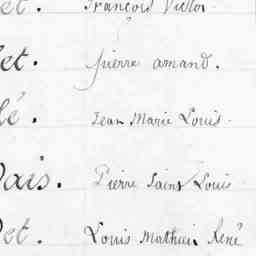 et. François Victor
et. pierre amand.
lé. Jean Marie Louis.
Dais. Pierre Saint Louis
et. Louis Mathieu René